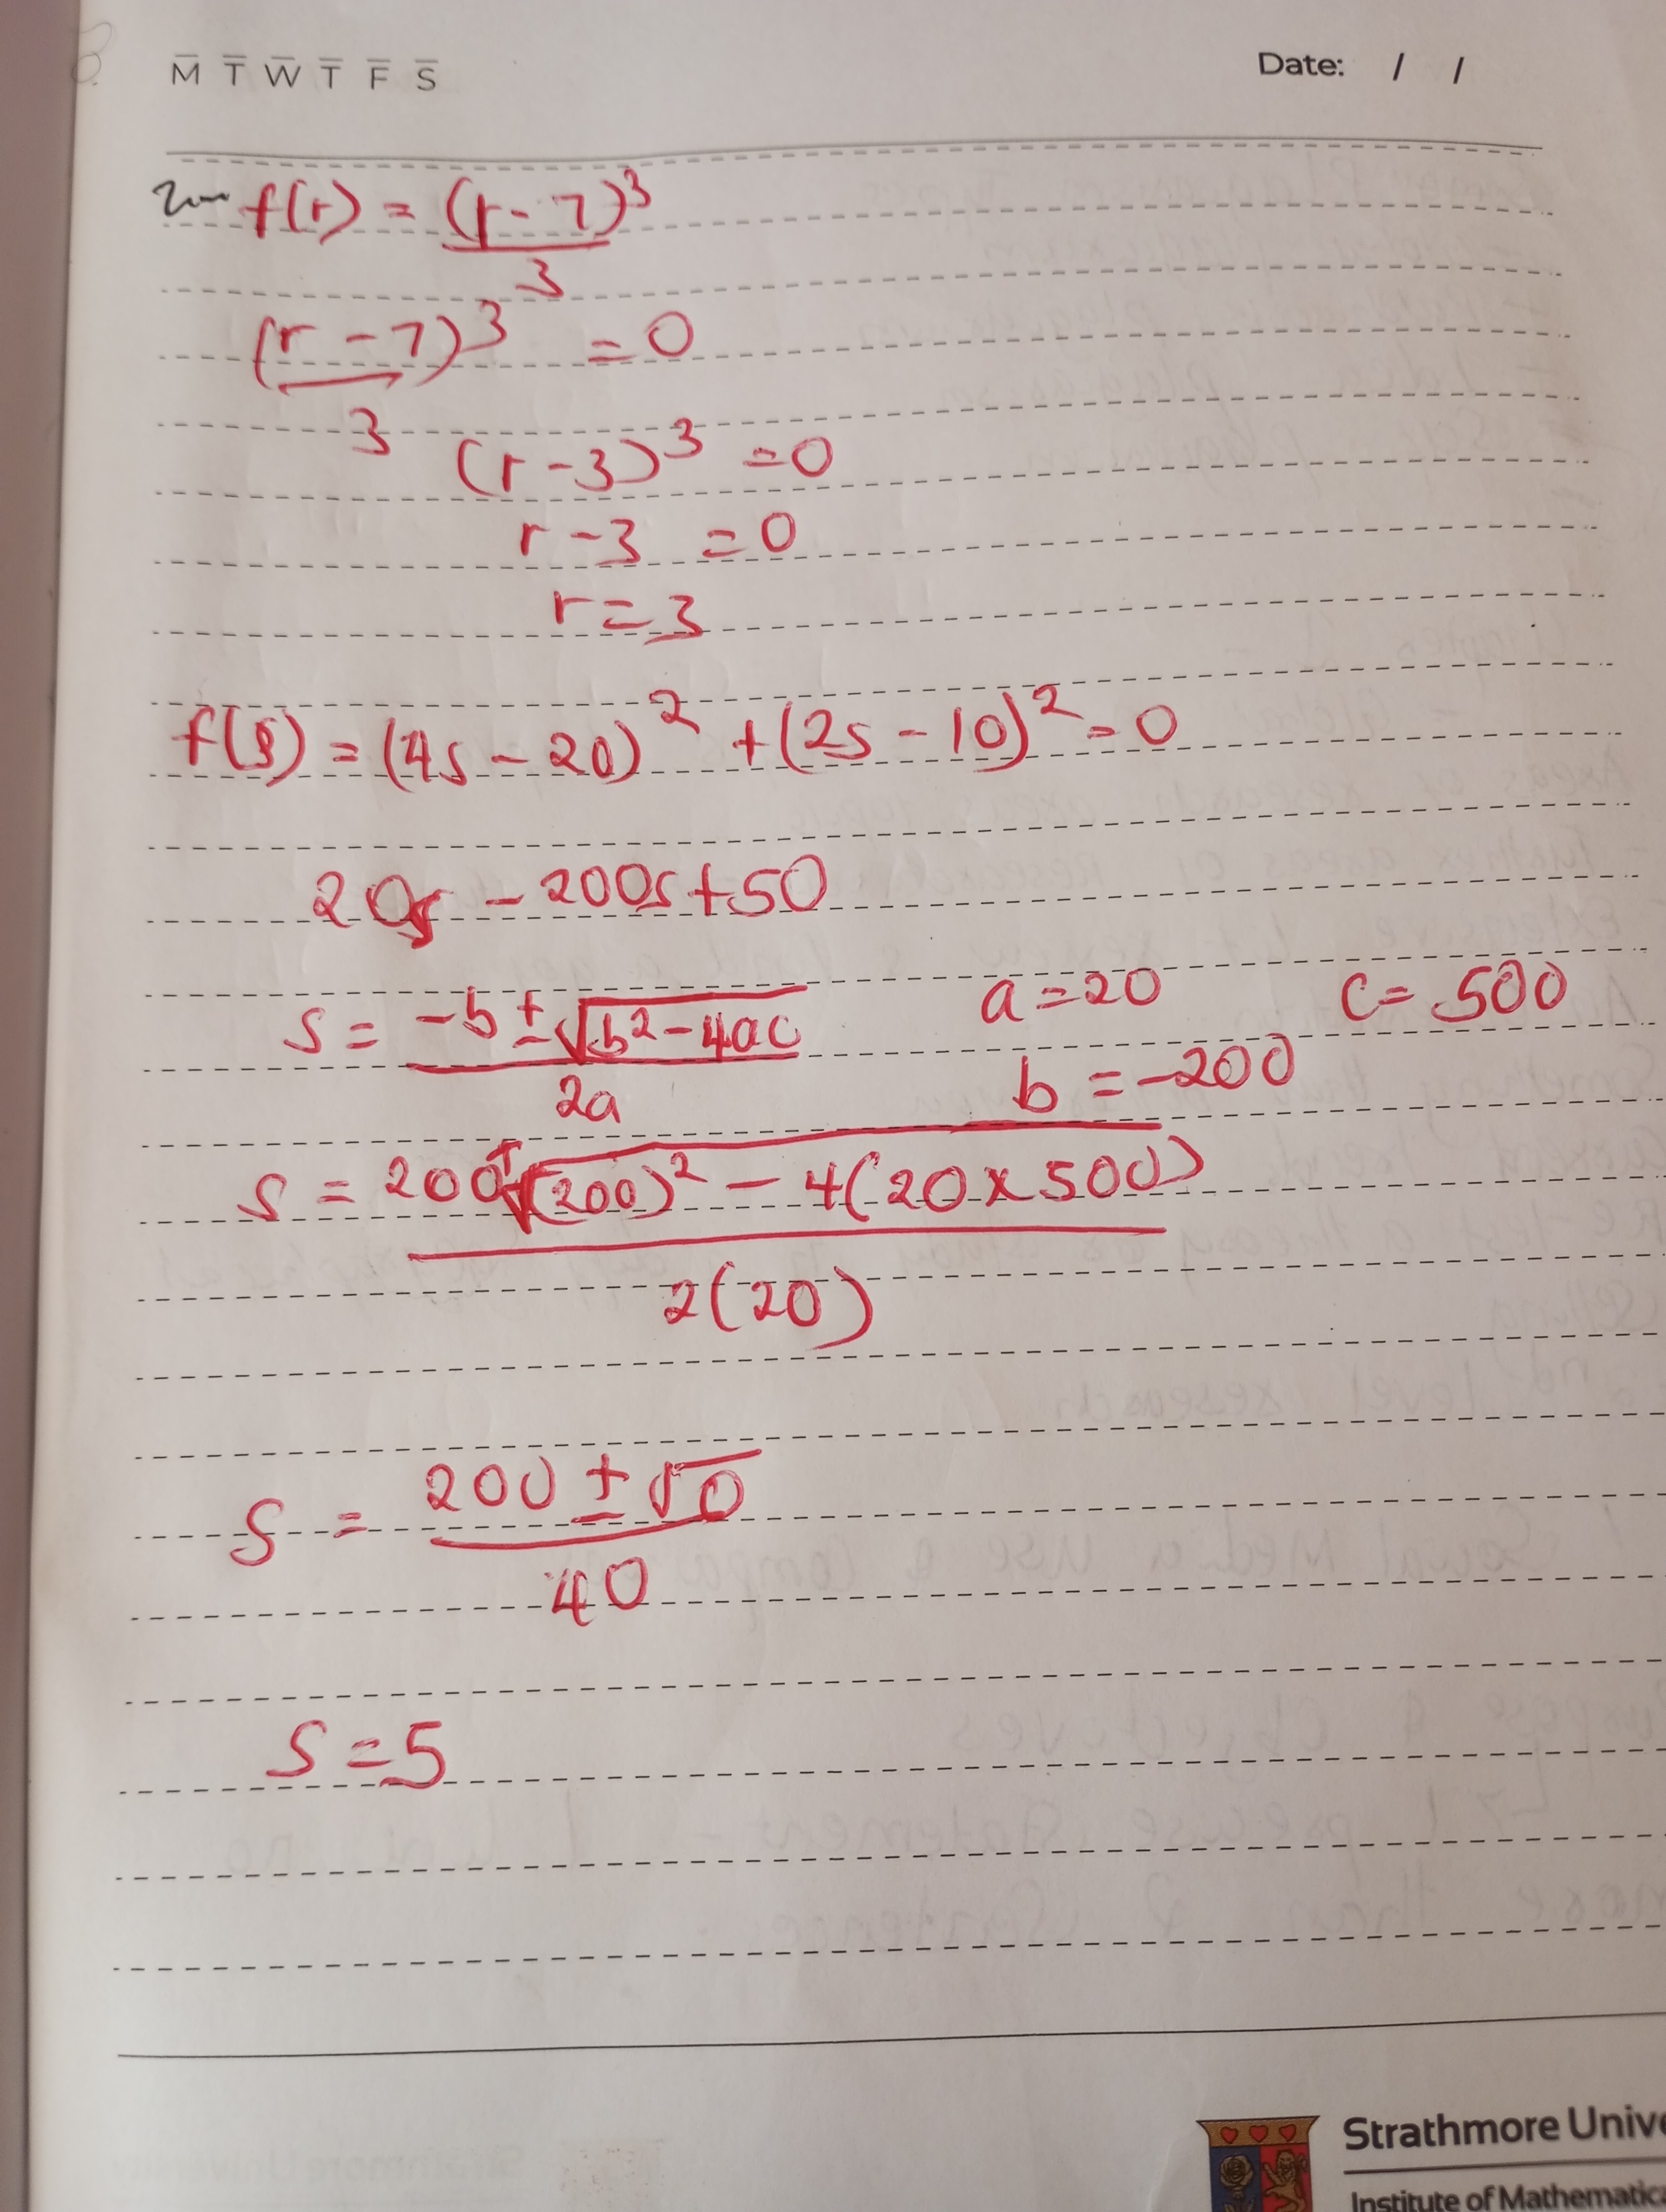 M T W T F S Date: / /
f(r) = (r - 7)³
3
(r - 7)³ = 0
3
(r - 3)³ = 0
r - 3 = 0
r = 3
f(s) = (4s - 20)² + (2s - 10)² = 0
20s - 200s + 50
s = -b ± √b² - 4ac a = 20 c = 500
2a b = -200
s = 200 ± √(200)² - 4(20 x 500)
2(20)
s = 200 ± √0
40
s = 5
Strathmore Unive
Institute of Mathematica